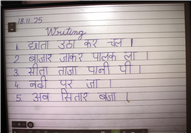 18.11.25
Writing
1. छाता उठा कर चल।
2. बाजार जाकर पालक ला।
3. सीता ताजा पानी पी।
4. नदी पर जा।
5. अब सितार बजा।